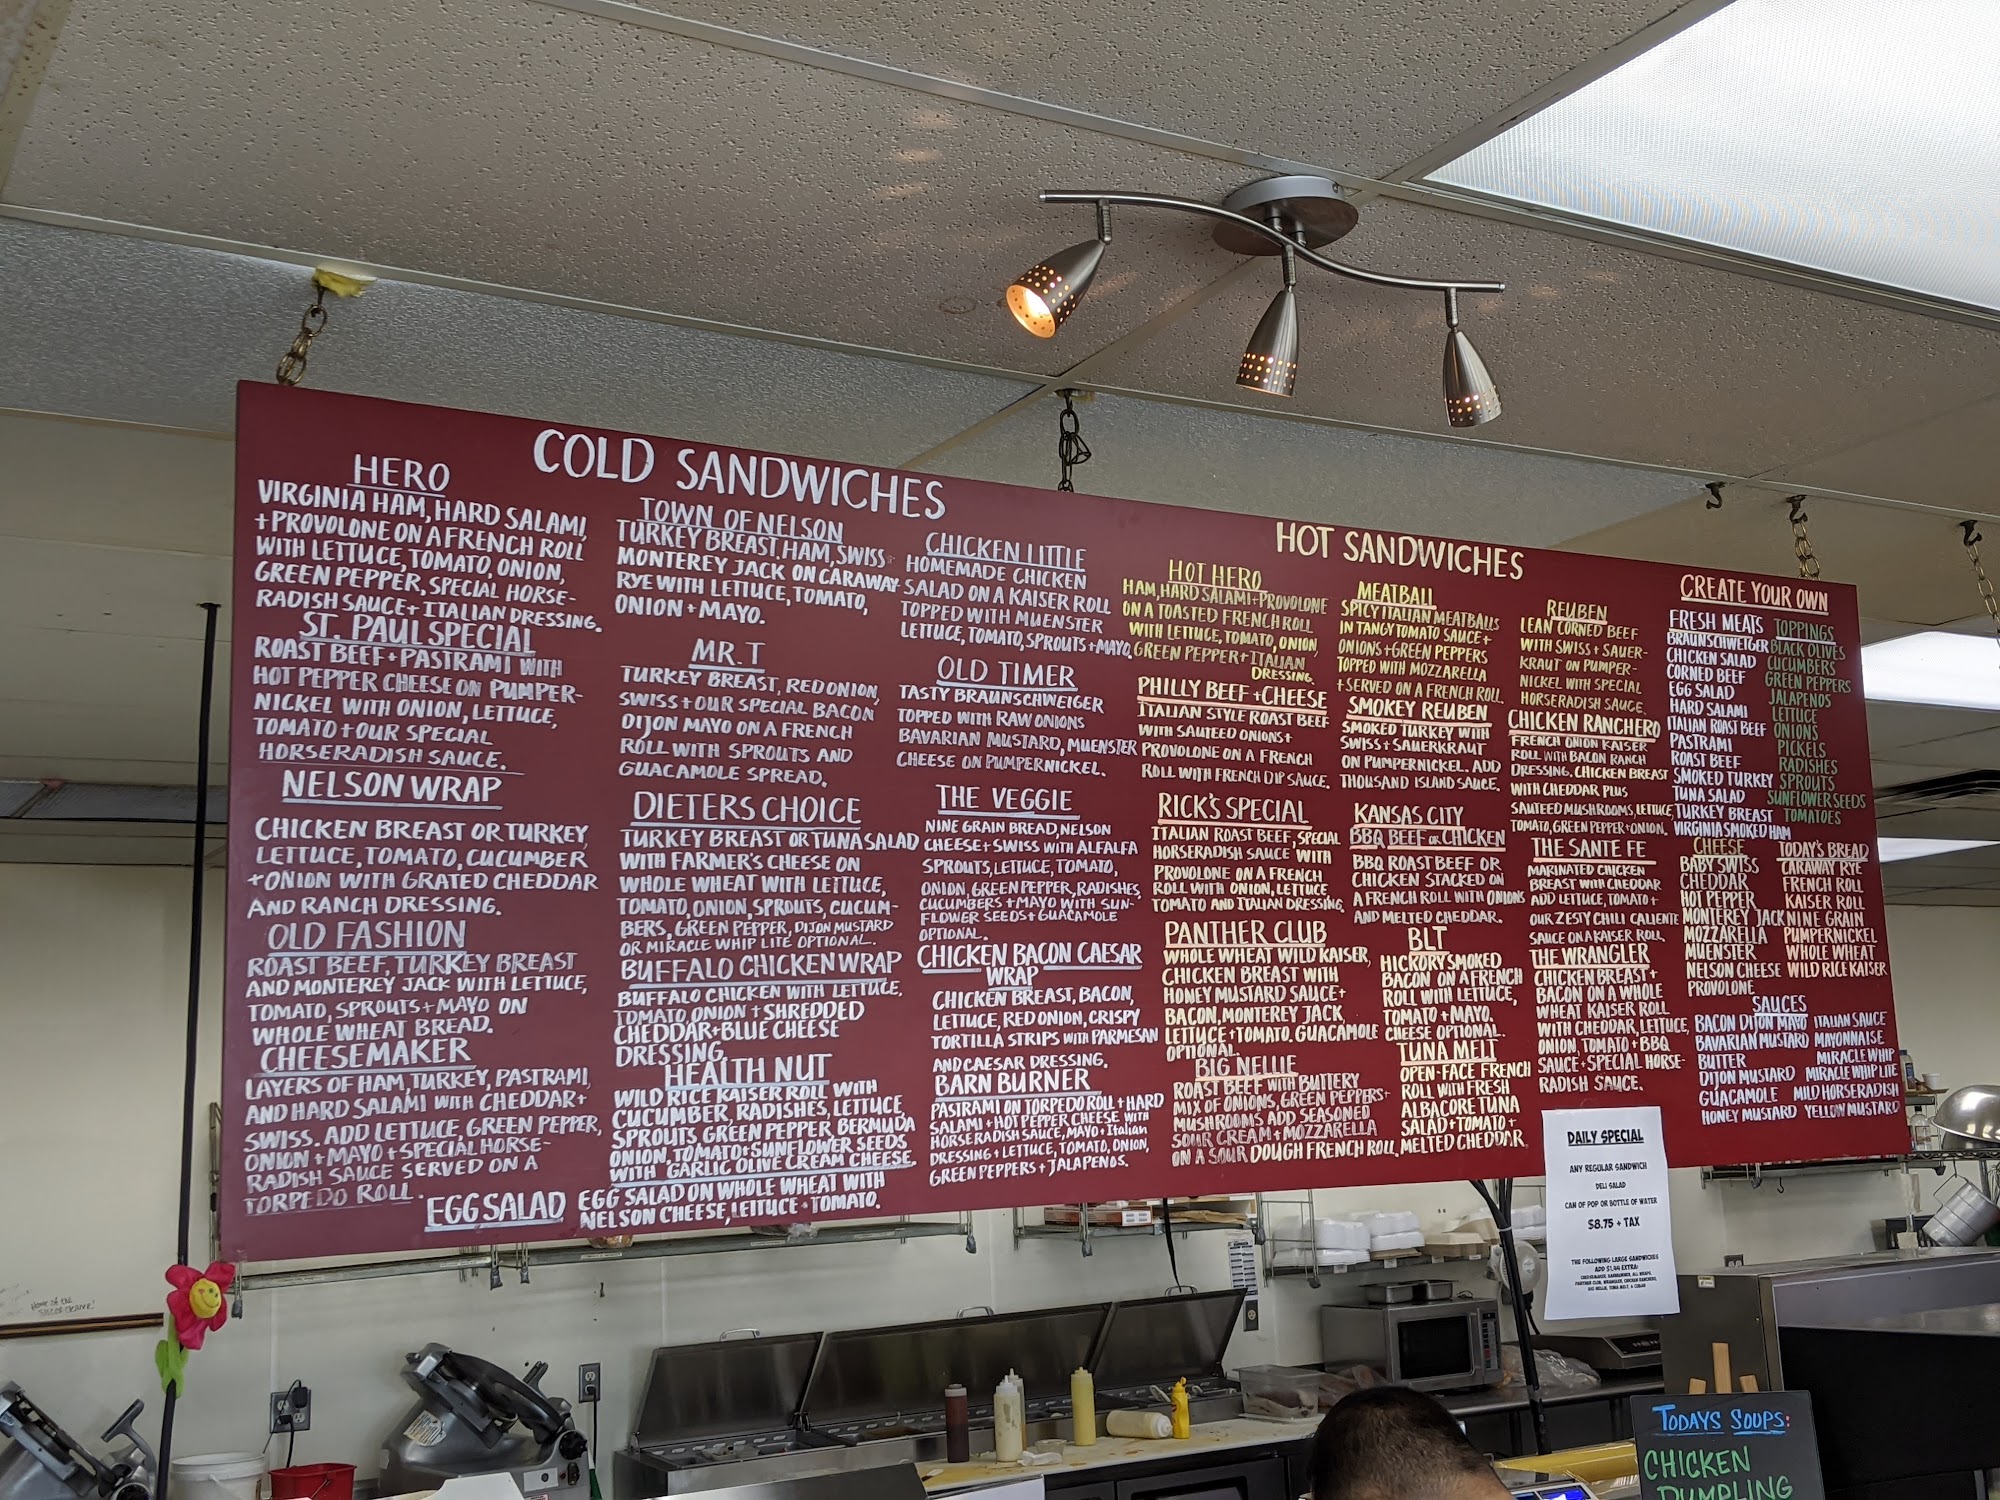 COLD SANDWICHES
HERO
VIRGINIA HAM, HARD SALAMI,
+ PROVOLONE ON A FRENCH ROLL
WITH LETTUCE, TOMATO, ONION,
GREEN PEPPER, SPECIAL HORSE-
RADISH SAUCE + ITALIAN DRESSING.
ST. PAUL SPECIAL
ROAST BEEF + PASTRAMI WITH
HOT PEPPER CHEESE ON PUMPER-
NICKEL WITH ONION, LETTUCE,
TOMATO + OUR SPECIAL
HORSERADISH SAUCE.
NELSON WRAP
CHICKEN BREAST OR TURKEY,
LETTUCE, TOMATO, CUCUMBER
+ ONION WITH GRATED CHEDDAR
AND RANCH DRESSING.
OLD FASHION
ROAST BEEF, TURKEY BREAST
AND MONTEREY JACK WITH LETTUCE,
TOMATO, SPROUTS + MAYO ON
WHOLE WHEAT BREAD.
CHEESEMAKER
LAYERS OF HAM, TURKEY, PASTRAMI,
AND HARD SALAMI WITH CHEDDAR +
SWISS. ADD LETTUCE, GREEN PEPPER,
ONION + MAYO + SPECIAL HORSE-
RADISH SAUCE SERVED ON A
TORPEDO ROLL.
EGG SALAD
EGG SALAD ON WHOLE WHEAT WITH
NELSON CHEESE, LETTUCE + TOMATO.
TOWN OF NELSON
TURKEY BREAST, HAM, SWISS +
MONTEREY JACK ON CARAWAY
RYE WITH LETTUCE, TOMATO,
ONION + MAYO.
MR. T
TURKEY BREAST, RED ONION,
SWISS + OUR SPECIAL BACON
DIJON MAYO ON A FRENCH
ROLL WITH SPROUTS AND
GUACAMOLE SPREAD.
DIETERS CHOICE
TURKEY BREAST OR TUNA SALAD
WITH FARMER'S CHEESE ON
WHOLE WHEAT WITH LETTUCE,
TOMATO, ONION, SPROUTS, CUCUM-
BERS, GREEN PEPPER, DIJON MUSTARD
OR MIRACLE WHIP LITE OPTIONAL.
BUFFALO CHICKEN WRAP
BUFFALO CHICKEN WITH LETTUCE,
TOMATO, ONION + SHREDDED
CHEDDAR + BLUE CHEESE
DRESSING
HEALTH NUT
WILD RICE KAISER ROLL WITH
CUCUMBER, RADISHES, LETTUCE,
SPROUTS, GREEN PEPPER, BERMUDA
ONION, TOMATO + SUNFLOWER SEEDS
WITH GARLIC OLIVE CREAM CHEESE.
CHICKEN LITTLE
HOMEMADE CHICKEN
SALAD ON A KAISER ROLL
TOPPED WITH MUENSTER
LETTUCE, TOMATO, SPROUTS + MAYO.
OLD TIMER
TASTY BRAUNSCHWEIGER
TOPPED WITH RAW ONIONS
BAVARIAN MUSTARD, MUENSTER
CHEESE ON PUMPERNICKEL.
THE VEGGIE
NINE GRAIN BREAD, NELSON
CHEESE + SWISS WITH ALFALFA
SPROUTS, LETTUCE, TOMATO,
ONION, GREEN PEPPER, RADISHES,
CUCUMBERS + MAYO WITH SUN-
FLOWER SEEDS + GUACAMOLE
OPTIONAL.
CHICKEN BACON CAESAR
WRAP
CHICKEN BREAST, BACON,
LETTUCE, RED ONION, CRISPY
TORTILLA STRIPS WITH PARMESAN
AND CAESAR DRESSING.
BARN BURNER
PASTRAMI ON TORPEDO ROLL + HARD
SALAMI + HOT PEPPER CHEESE WITH
HORSERADISH SAUCE, MAYO + Italian
DRESSING + LETTUCE, TOMATO, ONION,
GREEN PEPPERS + JALAPENOS.
HOT SANDWICHES
HOT HERO
HAM, HARD SALAMI + PROVOLONE
ON A TOASTED FRENCH ROLL
WITH LETTUCE, TOMATO, ONION,
GREEN PEPPER + ITALIAN
DRESSING.
PHILLY BEEF + CHEESE
ITALIAN STYLE ROAST BEEF
WITH SAUTEED ONIONS +
PROVOLONE ON A FRENCH
ROLL WITH FRENCH DIP SAUCE.
RICK'S SPECIAL
ITALIAN ROAST BEEF, SPECIAL
HORSERADISH SAUCE WITH
PROVOLONE ON A FRENCH
ROLL WITH ONION, LETTUCE,
TOMATO AND ITALIAN DRESSING.
PANTHER CLUB
WHOLE WHEAT WILD KAISER,
CHICKEN BREAST WITH
HONEY MUSTARD SAUCE +
BACON, MONTEREY JACK,
LETTUCE + TOMATO. GUACAMOLE
OPTIONAL.
BIG NELLIE
ROAST BEEF WITH BUTTERY
MIX OF ONIONS, GREEN PEPPERS +
MUSHROOMS ADD SEASONED
SOUR CREAM + MOZZARELLA
ON A SOUR DOUGH FRENCH ROLL.
MEATBALL
SPICY ITALIAN MEATBALLS
IN TANGY TOMATO SAUCE +
ONIONS + GREEN PEPPERS
TOPPED WITH MOZZARELLA
+ SERVED ON A FRENCH ROLL.
SMOKEY REUBEN
SMOKED TURKEY WITH
SWISS + SAUERKRAUT
ON PUMPERNICKEL. ADD
THOUSAND ISLAND SAUCE.
KANSAS CITY
BBQ BEEF OR CHICKEN
BBQ ROAST BEEF OR
CHICKEN STACKED ON
A FRENCH ROLL WITH ONIONS
AND MELTED CHEDDAR.
BLT
HICKORY SMOKED
BACON ON A FRENCH
ROLL WITH LETTUCE,
TOMATO + MAYO.
CHEESE OPTIONAL.
TUNA MELT
OPEN-FACE FRENCH
ROLL WITH FRESH
ALBACORE TUNA
SALAD + TOMATO +
MELTED CHEDDAR.
REUBEN
LEAN CORNED BEEF
WITH SWISS + SAUER-
KRAUT ON PUMPER-
NICKEL WITH SPECIAL
HORSERADISH SAUCE.
CHICKEN RANCHERO
FRENCH ONION KAISER
ROLL WITH BACON RANCH
DRESSING. CHICKEN BREAST
WITH CHEDDAR PLUS
SAUTEED MUSHROOMS, LETTUCE,
TOMATO, GREEN PEPPER + ONION.
THE SANTE FE
MARINATED CHICKEN
BREAST WITH CHEDDAR
ADD LETTUCE, TOMATO +
OUR ZESTY CHILI CALIENTE
SAUCE ON A KAISER ROLL
THE WRANGLER
CHICKEN BREAST +
BACON ON A WHOLE
WHEAT KAISER ROLL
WITH CHEDDAR, LETTUCE,
ONION, TOMATO + BBQ
SAUCE + SPECIAL HORSE-
RADISH SAUCE.
CREATE YOUR OWN
FRESH MEATS
BRAUNSCHWEIGER
CHICKEN SALAD
CORNED BEEF
EGG SALAD
HARD SALAMI
ITALIAN ROAST BEEF
PASTRAMI
ROAST BEEF
SMOKED TURKEY
TUNA SALAD
TURKEY BREAST
VIRGINIA SMOKED HAM
TOPPINGS
BLACK OLIVES
CUCUMBERS
GREEN PEPPERS
JALAPENOS
LETTUCE
ONIONS
PICKELS
RADISHES
SPROUTS
SUNFLOWER SEEDS
TOMATOES
CHEESE
BABY SWISS
CHEDDAR
HOT PEPPER
MONTEREY JACK
MOZZARELLA
MUENSTER
NELSON CHEESE
PROVOLONE
TODAY'S BREAD
CARAWAY RYE
FRENCH ROLL
KAISER ROLL
NINE GRAIN
PUMPERNICKEL
WHOLE WHEAT
WILD RICE KAISER
SAUCES
BACON DIJON MAYO
BAVARIAN MUSTARD
BUTTER
DIJON MUSTARD
GUACAMOLE
HONEY MUSTARD
ITALIAN SAUCE
MAYONNAISE
MIRACLE WHIP
MIRACLE WHIP LITE
MILD HORSERADISH
YELLOW MUSTARD
DAILY SPECIAL
ANY REGULAR SANDWICH
DELI SALAD
CAN OF POP OR BOTTLE OF WATER
$8.75 + TAX
THE FOLLOWING LARGE SANDWICHES
ADD $1.44 EXTRA:
TODAYS SOUPS:
CHICKEN
DUMPLING